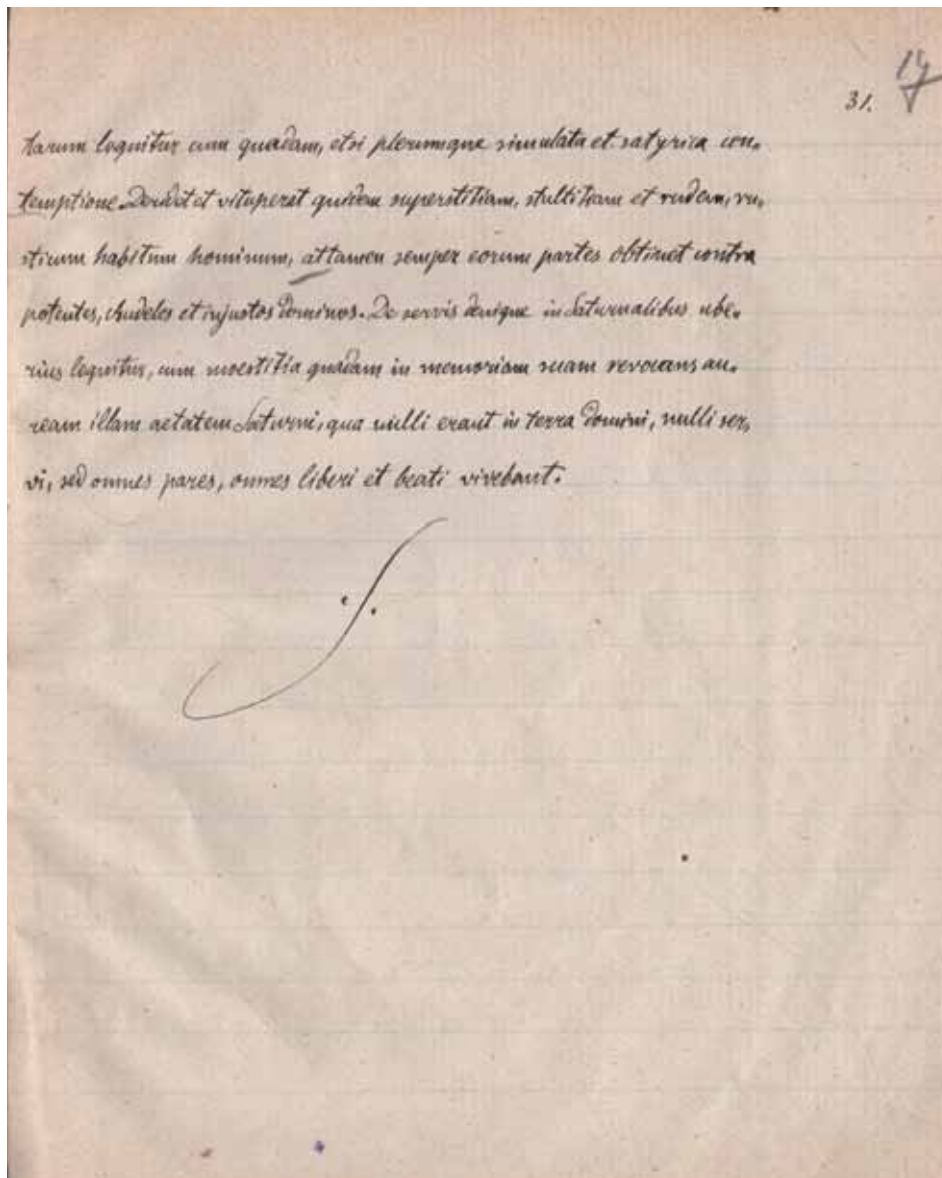 31.
tarum loquitur cum quadam, etsi plerumque simulata et satyrica con-
temptione. Deridet et vituperat quidem superstitiam, stultitiam et rudem, ru-
sticum habitum hominum, attamen semper eorum partes obtinet contra
potentes, crudeles et injustos dominos. De servis denique in Saturnalibus ube-
rius loquitur, cum moestitia quadam in memoriam suam revocans au-
ream illam aetatem Saturni, qua nulli erant in terra domini, nulli ser-
vi, sed omnes pares, omnes liberi et beati vivebant.